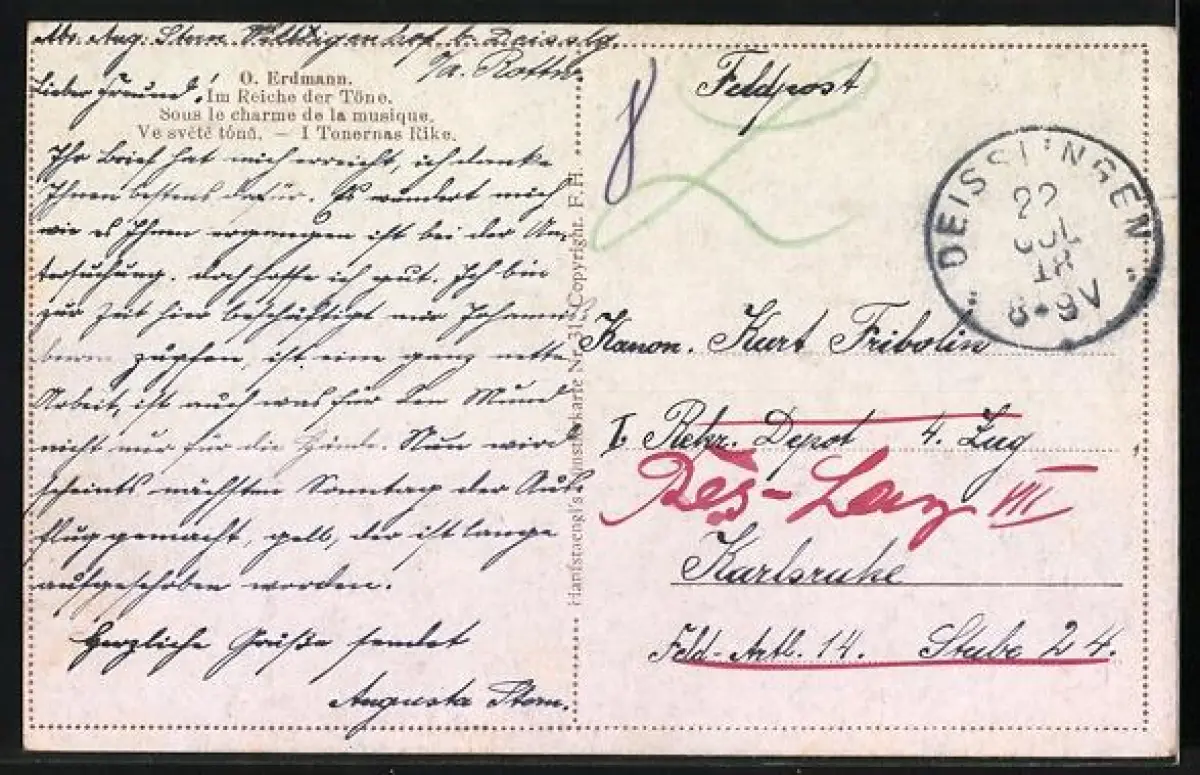 Abs. Aug. Stern. Wildigenhof b. Deisslg.
O/A. Rottw.
Lieber Freund!
O. Erdmann.
Im Reiche der Töne.
Sous le charme de la musique.
Ve světě tónů. — I Tonernas Rike.
Ihr Brief hat mich erreicht, ich danke
Ihnen bestens dafür. Es wundert mich
wie es Ihnen ergangen ist bei der Un-
tersuchung, doch hoffe ich gut. Ich bin
zur Zeit hier beschäftigt mit Johannis-
beern zupfen, ist eine ganz nette
Arbeit, ist auch was für den Mund
nicht nur für die Hände. Nun wird
scheints nächsten Sonntag der Aus-
flug gemacht, gell, der ist lange
aufgeschoben worden.
Herzliche Grüße sendet
Augusta Stern.
Hanfstaengl's Künstlerkarte Nr. Copyright. F. H.
8
Feldpost
DEISSLINGEN
22
JUL
18
8-9V
Kanon. Kurt Fribolin
I. Rekr. Depot 4. Zug
Res-Laz VIII
Karlsruhe
Feld-Artl. 14. Stube 24.